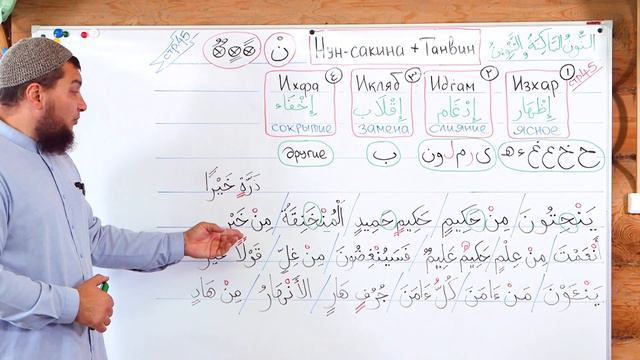 стр.45 نْ Нун-сакина + Танвин النُّونُ السَّاكِنَةُ وَالتَّنْوِينُ
٤ ٣ ٢ ١ стр45
Ихфа Икляб Идгам Изхар
إِخْفَاء إِقْلَاب إِدْغَام إِظْهَار
сокрытие замена слияние ясное
другие ب ى ر م ل و ن ح خ ع غ ء ه
ذَرَّةٍ خَيْرًا
يَنْحِتُونَ / مِنْ حَكِيمٍ / حَكِيمٍ حَمِيدٍ / الْمُنْخَنِقَةُ / مِنْ خَيْرٍ
أَنْعَمْتَ / مِنْ عِلْمٍ / حَكِيمٌ عَلِيمٌ / فَسَيُنْغِضُونَ / مِنْ غِلٍّ / قَوْلًا غَيْرَ
يَنْـَٔوْنَ / مَنْ ءَامَنَ / كُلٌّ ءَامَنَ / جُرُفٍ هَارٍ / الأَنْهَارُ / مِنْ هَادٍ